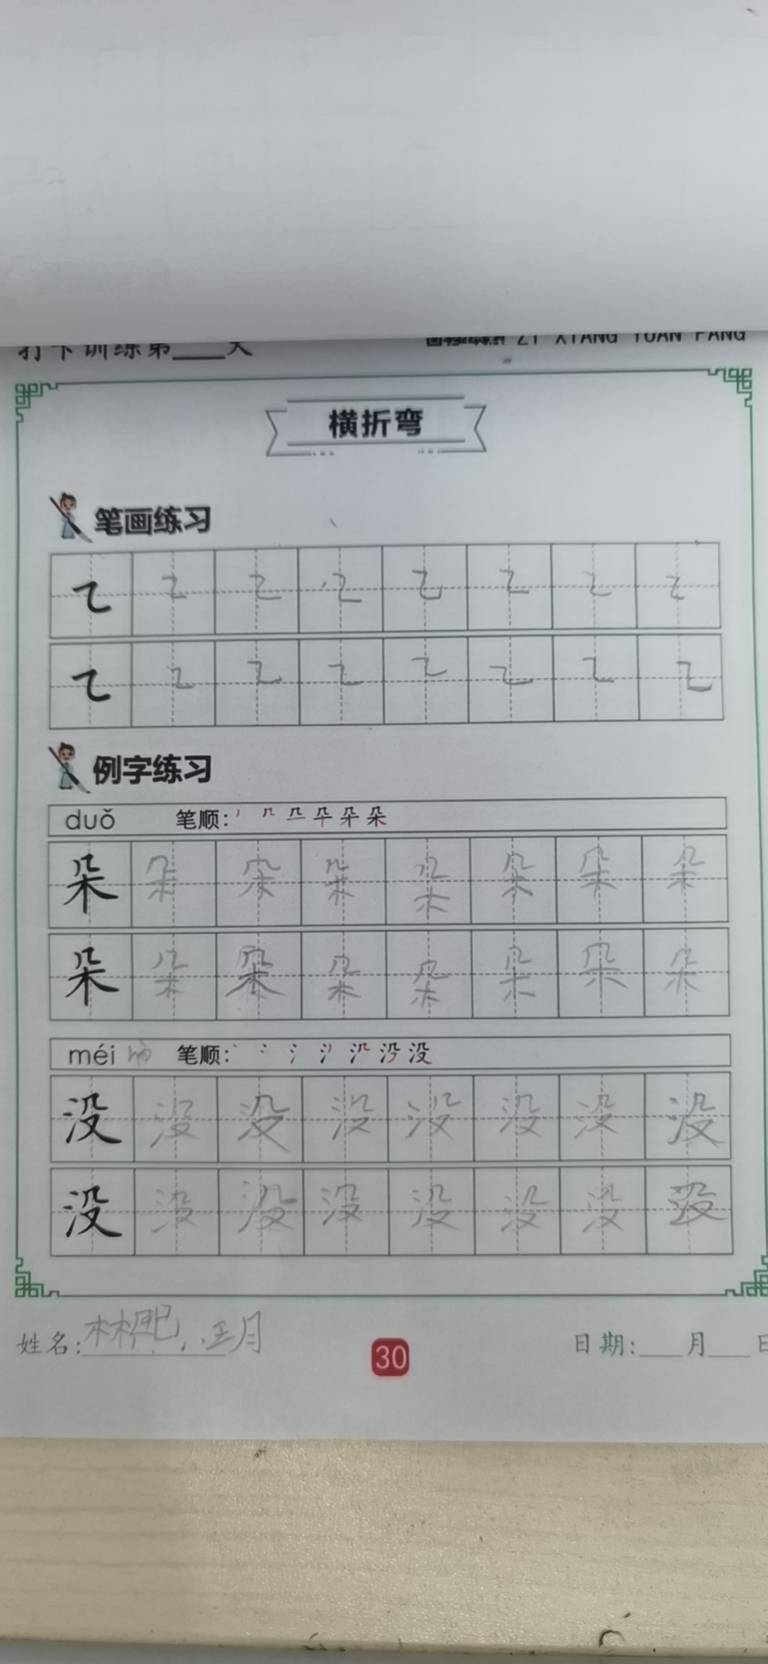 打卡训练第___天
ZI XIANG YUAN FANG
横折弯
笔画练习
㇍ ㇍ ㇍ ㇍ ㇍ ㇍ ㇍ ㇍
㇍ ㇍ ㇍ ㇍ ㇍ ㇍ ㇍ ㇍
例字练习
duǒ 笔顺:
朵 朵 朵 朵 朵 朵 朵 朵
朵 朵 朵 朵 朵 朵 朵 朵
méi 笔顺:
没 没 没 没 没 没 没 没
没 没 没 没 没 没 没 没
姓名:林
30
日期:___月___日